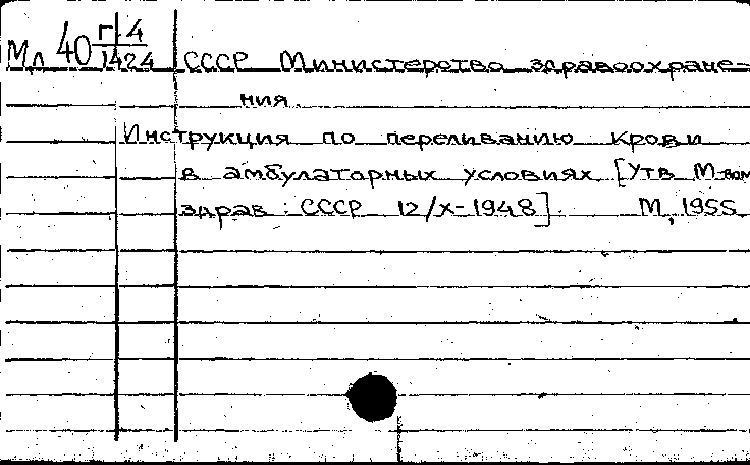 Мл 40 г-4/1424 СССР Министерство здравоохране-
ния.
Инструкция по переливанию крови
в амбулаторных условиях [Утв М-вом
здрав. СССР 12/X-1948]. М, 1955